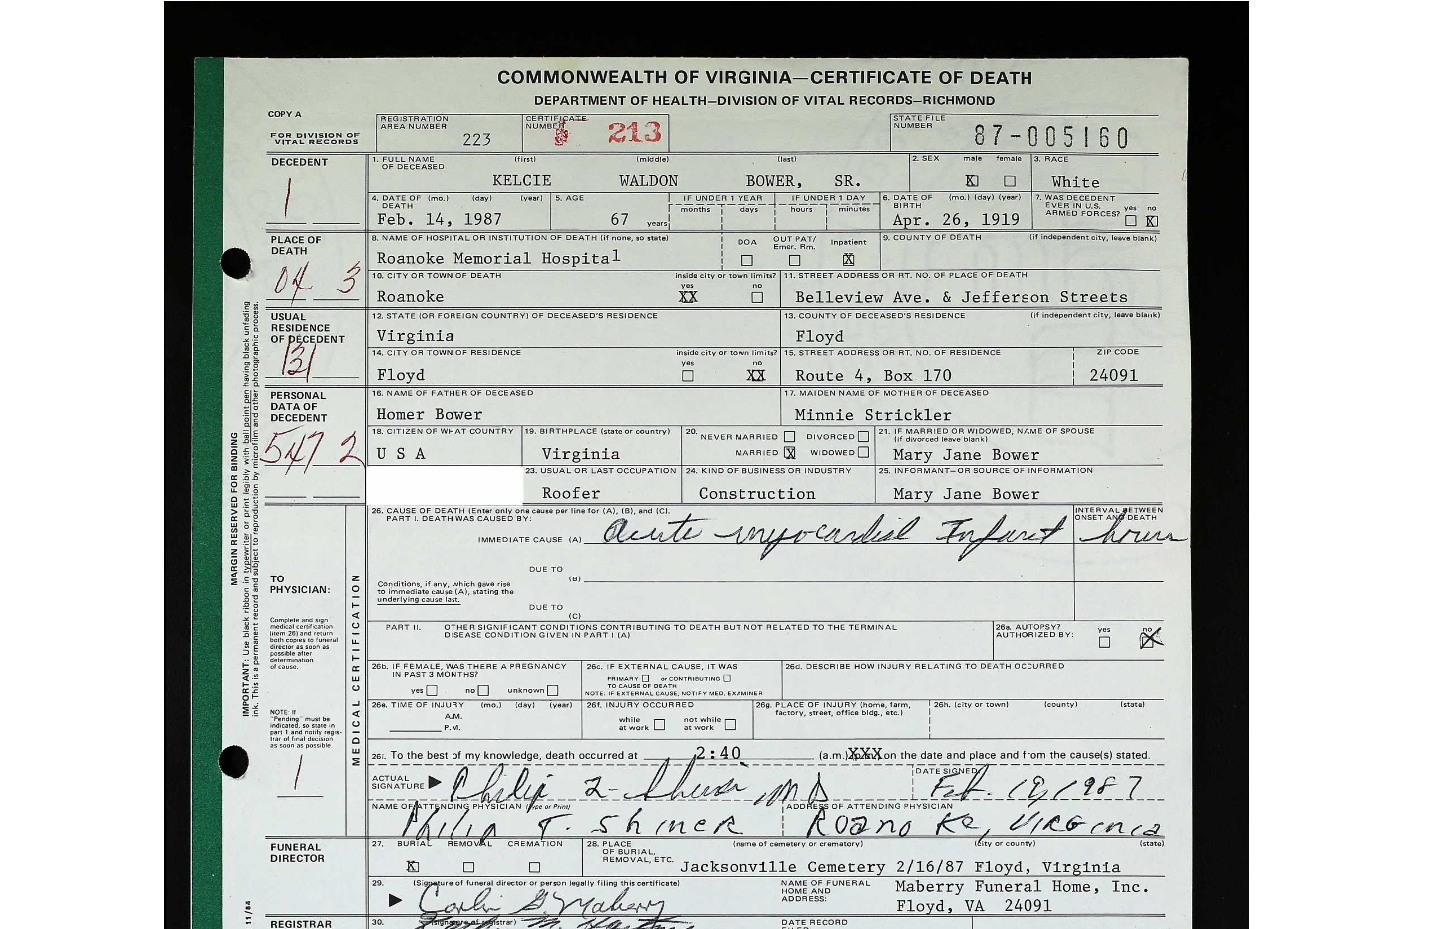 COMMONWEALTH OF VIRGINIA—CERTIFICATE OF DEATH
DEPARTMENT OF HEALTH—DIVISION OF VITAL RECORDS—RICHMOND
COPY A
FOR DIVISION OF VITAL RECORDS
REGISTRATION AREA NUMBER 223
CERTIFICATE NUMBER 213
STATE FILE NUMBER 87-005160
DECEDENT
1
1. FULL NAME OF DECEASED (first) (middle) (last)
KELCIE WALDON BOWER, SR.
2. SEX male female
X
3. RACE
White
4. DATE OF DEATH (mo.) (day) (year)
Feb. 14, 1987
5. AGE
67 years
IF UNDER 1 YEAR months days
IF UNDER 1 DAY hours minutes
6. DATE OF BIRTH (mo.) (day) (year)
Apr. 26, 1919
7. WAS DECEDENT EVER IN U.S. ARMED FORCES? yes no
X
PLACE OF DEATH
04 3
8. NAME OF HOSPITAL OR INSTITUTION OF DEATH (if none, so state)
Roanoke Memorial Hospital
DOA OUT PAT/ Emer. Rm. Inpatient
X
9. COUNTY OF DEATH (if independent city, leave blank)
10. CITY OR TOWN OF DEATH
Roanoke
inside city or town limits? yes no
XX
11. STREET ADDRESS OR RT. NO. OF PLACE OF DEATH
Belleview Ave. & Jefferson Streets
USUAL RESIDENCE OF DECEDENT
131
12. STATE (OR FOREIGN COUNTRY) OF DECEASED'S RESIDENCE
Virginia
13. COUNTY OF DECEASED'S RESIDENCE (if independent city, leave blank)
Floyd
14. CITY OR TOWN OF RESIDENCE
Floyd
inside city or town limits? yes no
XX
15. STREET ADDRESS OR RT. NO. OF RESIDENCE
Route 4, Box 170
ZIP CODE
24091
PERSONAL DATA OF DECEDENT
547 2
16. NAME OF FATHER OF DECEASED
Homer Bower
17. MAIDEN NAME OF MOTHER OF DECEASED
Minnie Strickler
18. CITIZEN OF WHAT COUNTRY
U S A
19. BIRTHPLACE (state or country)
Virginia
20. NEVER MARRIED DIVORCED
MARRIED X WIDOWED
21. IF MARRIED OR WIDOWED, NAME OF SPOUSE (if divorced leave blank)
Mary Jane Bower
23. USUAL OR LAST OCCUPATION
Roofer
24. KIND OF BUSINESS OR INDUSTRY
Construction
25. INFORMANT—OR SOURCE OF INFORMATION
Mary Jane Bower
MARGIN RESERVED FOR BINDING
IMPORTANT: Use black ribbon in typewriter or print legibly with ball point pen having black unfading
ink. This is a permanent record and subject to reproduction by microfilm and other photographic process.
TO PHYSICIAN:
Complete and sign medical certification (item 26) and return both copies to funeral director as soon as possible after determination of cause.
NOTE: If "Pending" must be indicated, so state in part 1 and notify registrar of final decision as soon as possible.
1
MEDICAL CERTIFICATION
26. CAUSE OF DEATH (Enter only one cause per line for (A), (B), and (C).
PART I. DEATH WAS CAUSED BY:
INTERVAL BETWEEN ONSET AND DEATH
IMMEDIATE CAUSE (A) Acute myocardial Infarct hours
DUE TO (B)
Conditions, if any, which gave rise to immediate cause (A), stating the underlying cause last.
DUE TO (C)
PART II. OTHER SIGNIFICANT CONDITIONS CONTRIBUTING TO DEATH BUT NOT RELATED TO THE TERMINAL DISEASE CONDITION GIVEN IN PART I (A)
26a. AUTOPSY? AUTHORIZED BY: yes no
X
26b. IF FEMALE, WAS THERE A PREGNANCY IN PAST 3 MONTHS?
yes no unknown
26c. IF EXTERNAL CAUSE, IT WAS
PRIMARY or CONTRIBUTING
TO CAUSE OF DEATH
NOTE: IF EXTERNAL CAUSE, NOTIFY MED. EXAMINER
26d. DESCRIBE HOW INJURY RELATING TO DEATH OCCURRED
26e. TIME OF INJURY (mo.) (day) (year)
A.M.
P.M.
26f. INJURY OCCURRED
while at work not while at work
26g. PLACE OF INJURY (home, farm, factory, street, office bldg., etc.)
26h. (city or town) (county) (state)
26i. To the best of my knowledge, death occurred at 2:40 (a.m.) XXX on the date and place and from the cause(s) stated.
ACTUAL SIGNATURE Philip T. Shiner MD
DATE SIGNED Feb. 19, 1987
NAME OF ATTENDING PHYSICIAN (Type or Print)
Philip T. Shiner
ADDRESS OF ATTENDING PHYSICIAN
Roanoke, Virginia
FUNERAL DIRECTOR
27. BURIAL REMOVAL CREMATION
X
28. PLACE OF BURIAL, REMOVAL, ETC. (name of cemetery or crematory) (city or county) (state)
Jacksonville Cemetery 2/16/87 Floyd, Virginia
29. (Signature of funeral director or person legally filing this certificate)
Carlin G. Maberry
NAME OF FUNERAL HOME AND ADDRESS:
Maberry Funeral Home, Inc.
Floyd, VA 24091
11/84
REGISTRAR
30. (Signature of registrar)
DATE RECORD